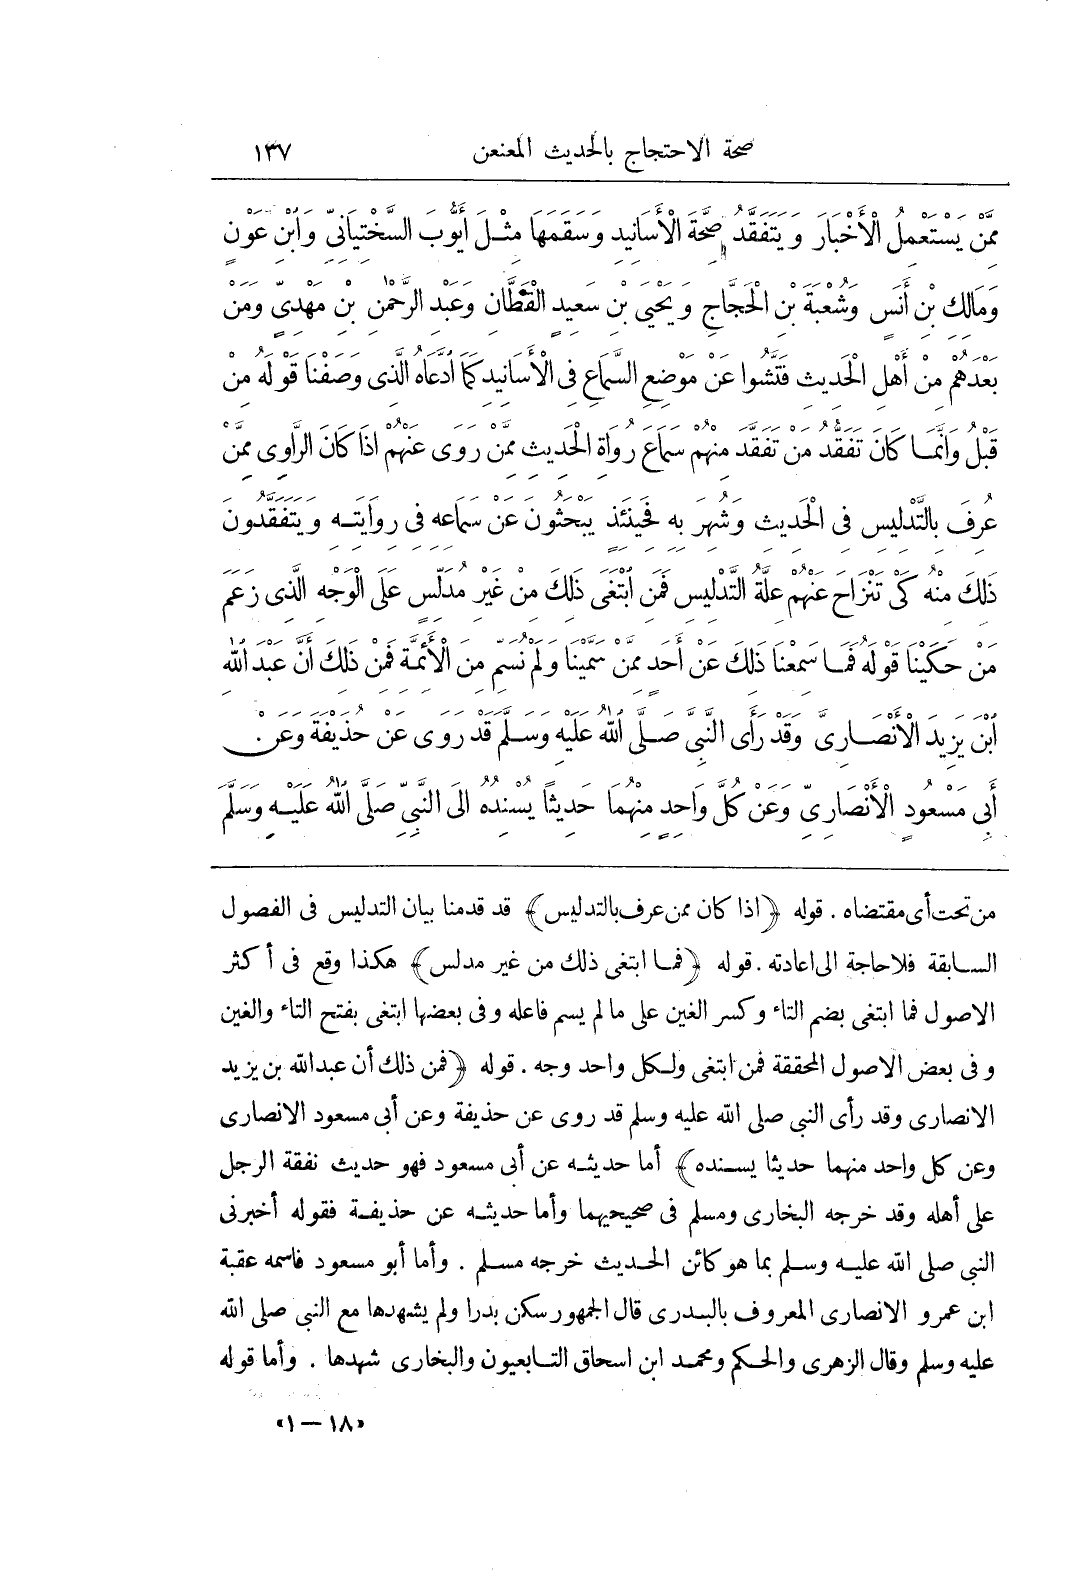 صحة الاحتجاج بالحديث المعنعن ١٣٧
مِمَّنْ يَسْتَعْمِلُ الْأَخْبَارَ وَيَتَفَقَّدُ صِحَّةَ الْأَسَانِيدِ وَسَقَمَهَا مِثْلَ أَيُّوبَ السَّخْتِيَانِيِّ وَابْنِ عَوْنٍ
وَمَالِكِ بْنِ أَنَسٍ وَشُعْبَةَ بْنِ الْحَجَّاجِ وَيَحْيَى بْنِ سَعِيدٍ الْقَطَّانِ وَعَبْدِ الرَّحْمٰنِ بْنِ مَهْدِيٍّ وَمَنْ
بَعْدَهُمْ مِنْ أَهْلِ الْحَدِيثِ فَتَّشُوا عَنْ مَوْضِعِ السَّمَاعِ فِى الْأَسَانِيدِ كَمَا ادَّعَاهُ الَّذِى وَصَفْنَا قَوْلَهُ مِنْ
قَبْلُ وَإِنَّمَا كَانَ تَفَقُّدُ مَنْ تَفَقَّدَ مِنْهُمْ سَمَاعَ رُوَاةِ الْحَدِيثِ مِمَّنْ رَوَى عَنْهُمْ اذَا كَانَ الرَّاوِى مِمَّنْ
عُرِفَ بِالتَّدْلِيسِ فِى الْحَدِيثِ وَشُهِرَ بِهِ فَحِينَئِذٍ يَبْحَثُونَ عَنْ سَمَاعِهِ فِى رِوَايَتِهِ وَيَتَفَقَّدُونَ
ذَلِكَ مِنْهُ كَىْ تَنْزَاحَ عَنْهُمْ عِلَّةُ التَّدْلِيسِ فَمَنِ ابْتَغَى ذَلِكَ مِنْ غَيْرِ مُدَلِّسٍ عَلَى الْوَجْهِ الَّذِى زَعَمَ
مَنْ حَكَيْنَا قَوْلَهُ فَمَا سَمِعْنَا ذَلِكَ عَنْ أَحَدٍ مِمَّنْ سَمَّيْنَا وَلَمْ نُسَمِّ مِنَ الْأَئِمَّةِ فَمِنْ ذَلِكَ أَنَّ عَبْدَ اللهِ
ابْنَ يَزِيدَ الْأَنْصَارِىَّ وَقَدْ رَأَى النَّبِىَّ صَلَّى اللهُ عَلَيْهِ وَسَلَّمَ قَدْ رَوَى عَنْ حُذَيْفَةَ وَعَنْ
أَبِى مَسْعُودٍ الْأَنْصَارِىِّ وَعَنْ كُلِّ وَاحِدٍ مِنْهُمَا حَدِيثًا يُسْنِدُهُ الَى النَّبِىِّ صَلَّى اللهُ عَلَيْهِ وَسَلَّمَ
من تحت أى مقتضاه . قوله ﴿اذا كان ممن عرف بالتدليس﴾ قد قدمنا بيان التدليس فى الفصول
السابقة فلا حاجة الى اعادته . قوله ﴿فما ابتغى ذلك من غير مدلس﴾ هكذا وقع فى أكثر
الاصول فما ابتغى بضم التاء وكسر الغين على ما لم يسم فاعله وفى بعضها ابتغى بفتح التاء والغين
وفى بعض الاصول المحققة فمن ابتغى ولكل واحد وجه . قوله ﴿فمن ذلك أن عبدالله بن يزيد
الانصارى وقد رأى النبى صلى الله عليه وسلم قد روى عن حذيفة وعن أبى مسعود الانصارى
وعن كل واحد منهما حديثا يسنده﴾ أما حديثه عن أبى مسعود فهو حديث نفقة الرجل
على أهله وقد خرجه البخارى ومسلم فى صحيحيهما وأما حديثه عن حذيفة فقوله أخبرنى
النبى صلى الله عليه وسلم بما هو كائن الحديث خرجه مسلم . وأما أبو مسعود فاسمه عقبة
ابن عمرو الانصارى المعروف بالبدرى قال الجمهور سكن بدرا ولم يشهدها مع النبى صلى الله
عليه وسلم وقال الزهرى والحكم ومحمد ابن اسحاق التابعيون والبخارى شهدها . وأما قوله
«١٨ — ١»